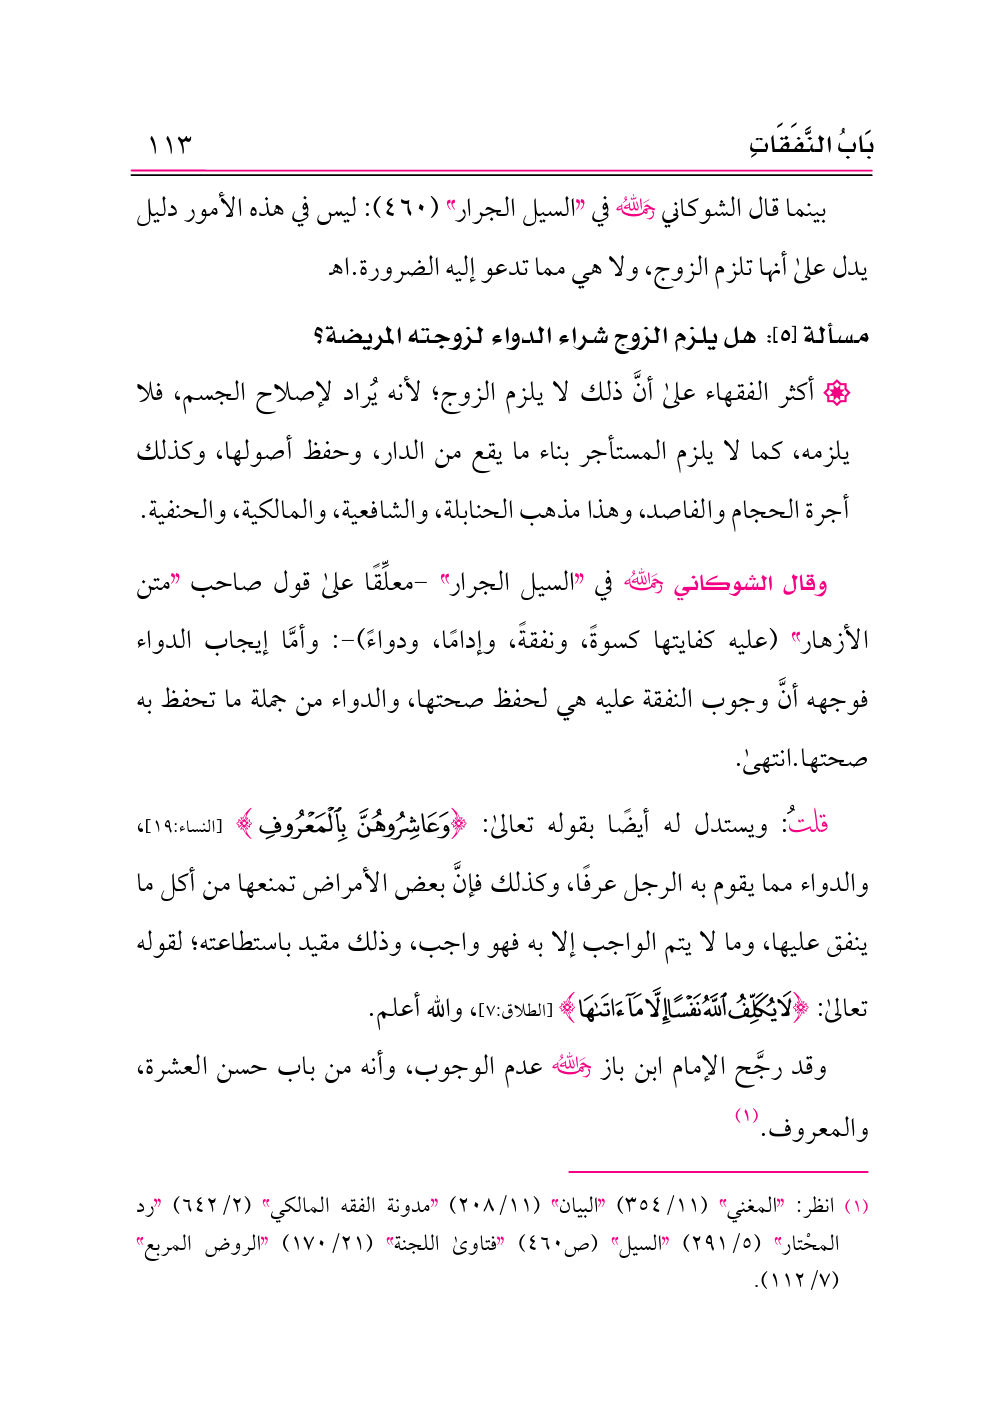 بَابُ النَّفَقَاتِ ١١٣
بينما قال الشوكاني رَحِمَهُ اللهُ في "السيل الجرار" (٤٦٠): ليس في هذه الأمور دليل
يدل علىٰ أنها تلزم الزوج، ولا هي مما تدعو إليه الضرورة.اهـ
مسألة [٥]: هل يلزم الزوج شراء الدواء لزوجته المريضة؟
أكثر الفقهاء علىٰ أنَّ ذلك لا يلزم الزوج؛ لأنه يُراد لإصلاح الجسم، فلا
يلزمه، كما لا يلزم المستأجر بناء ما يقع من الدار، وحفظ أصولها، وكذلك
أجرة الحجام والفاصد، وهذا مذهب الحنابلة، والشافعية، والمالكية، والحنفية.
وقال الشوكاني رَحِمَهُ اللهُ في "السيل الجرار" -معلِّقًا علىٰ قول صاحب "متن
الأزهار" (عليه كفايتها كسوةً، ونفقةً، وإدامًا، ودواءً)-: وأمَّا إيجاب الدواء
فوجهه أنَّ وجوب النفقة عليه هي لحفظ صحتها، والدواء من جملة ما تحفظ به
صحتها.انتهىٰ.
قلتُ: ويستدل له أيضًا بقوله تعالىٰ: ﴿وَعَاشِرُوهُنَّ بِٱلْمَعْرُوفِ﴾ [النساء:١٩]،
والدواء مما يقوم به الرجل عرفًا، وكذلك فإنَّ بعض الأمراض تمنعها من أكل ما
ينفق عليها، وما لا يتم الواجب إلا به فهو واجب، وذلك مقيد باستطاعته؛ لقوله
تعالىٰ: ﴿لَا يُكَلِّفُ ٱللَّهُ نَفْسًا إِلَّا مَآ ءَاتَىٰهَا﴾ [الطلاق:٧]، والله أعلم.
وقد رجَّح الإمام ابن باز رَحِمَهُ اللهُ عدم الوجوب، وأنه من باب حسن العشرة،
والمعروف.(١)
(١) انظر: "المغني" (١١/ ٣٥٤) "البيان" (١١/ ٢٠٨) "مدونة الفقه المالكي" (٢/ ٦٤٢) "رد
المحْتار" (٥/ ٢٩١) "السيل" (ص٤٦٠) "فتاوىٰ اللجنة" (٢١/ ١٧٠) "الروض المربع"
(٧/ ١١٢).